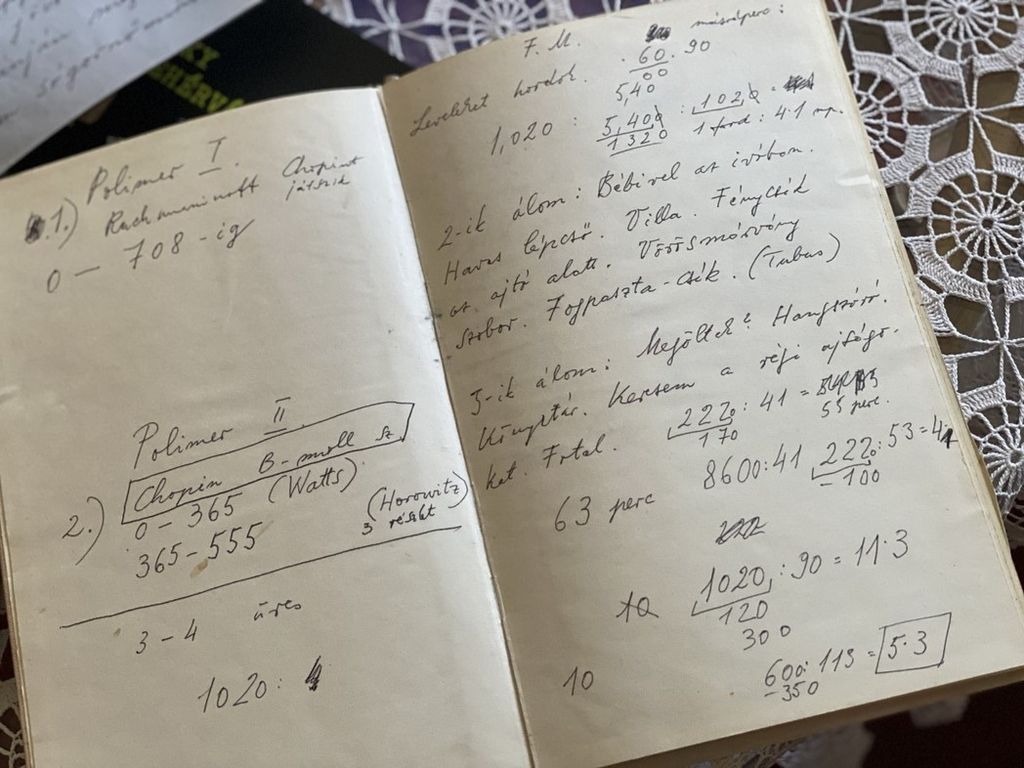 KY
EHÉRVÁ
Polimer I.
1.) Rachmaninoff Chopint
játszik
0 — 708-ig
Polimer II
2.) Chopin B-moll sz
0 - 365 (Watts)
365 - 555 (Horowitz)
3 részt
3 - 4 üres
1020:
F. M. másodperc:
Leveleket hordok. 60.90
00
5,40
1,020 : 5,400 : 1020 =
1320 1 ford: 41 mp.
2-ik álom: Bébivel az ivóban.
Havas lépcső. Villa. Fénycsík
az ajtó alatt. Vörösmárvány
szobor. Fogpaszta-csík. (Tubus)
3-ik álom: Megöltek? Hangszóró.
Könyvtár. Keresem a régi ajtófogó-
kat. Fotel. 2220 : 41 =
170 55 perc.
63 perc 8600:41 222:53=4
-100
10 1020 : 90 = 11.3
120
300
10 600:113 = 5.3
-350